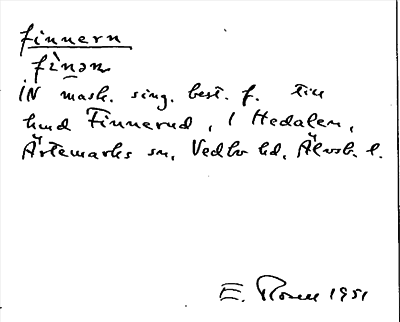 finnern
fìnəɳ
IN mask. sing. best. f. till
hmd Finnerud, i Hedalen,
Ärtemarks sn, Vedbo hd, Älvsb. l.
E. Rosell 1951